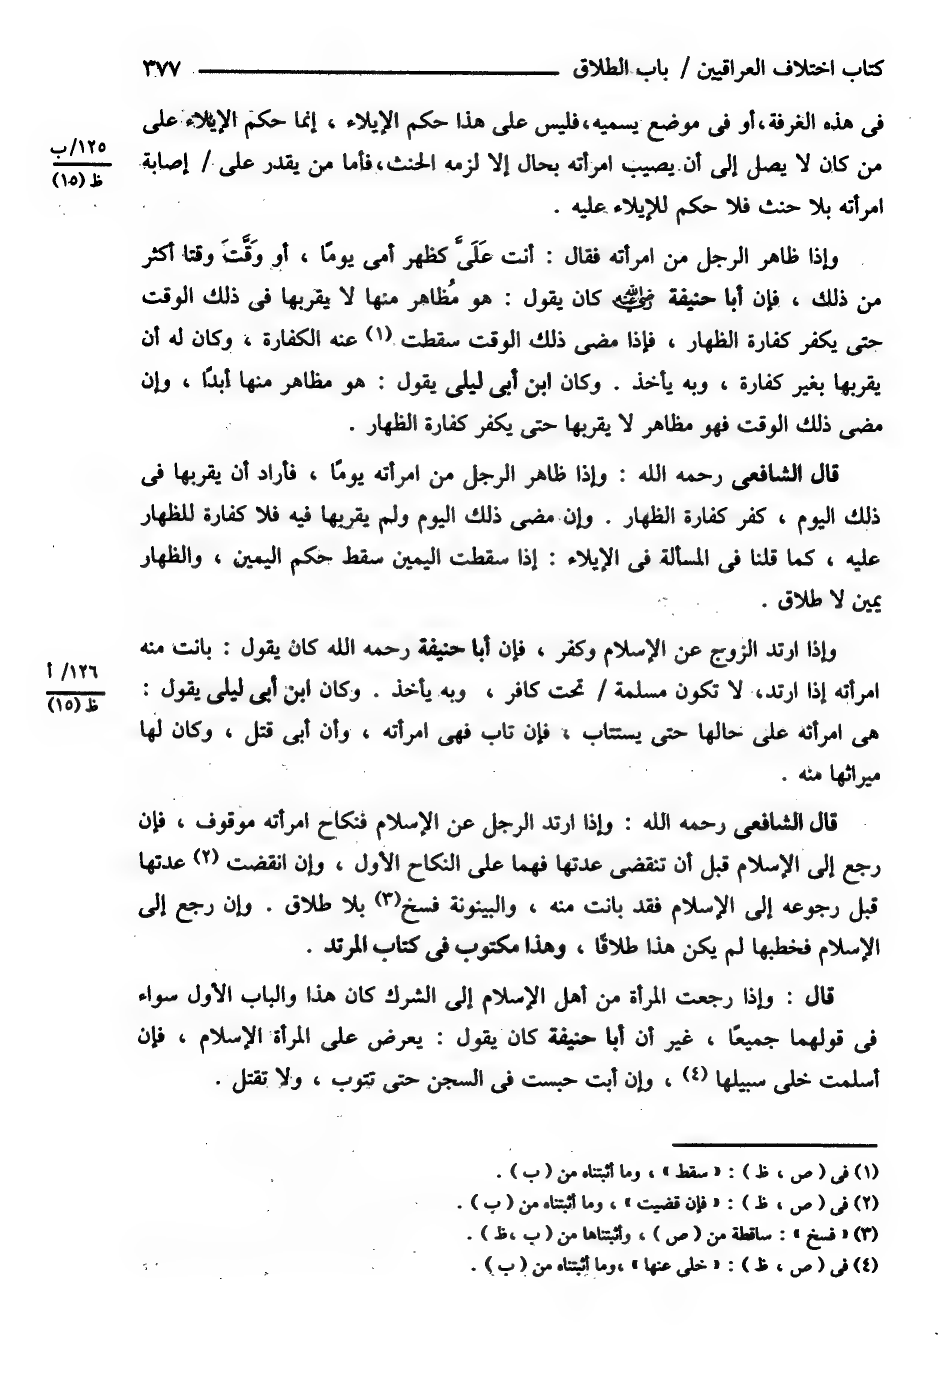 كتاب اختلاف العراقيين / باب الطلاق ٣٧٧
فى هذه الغرفة،أو فى موضع يسميه،فليس على هذا حكم الإيلاء ، إنما حكم الإيلاء على
من كان لا يصل إلى أن يصيب امرأته بحال إلا لزمه الحنث،فأما من يقدر على / إصابة
١٢٥/ب
ظ (١٥)
امرأته بلا حنث فلا حكم للإيلاء عليه .
وإذا ظاهر الرجل من امرأته فقال : أنت عَلَىَّ كظهر أمى يومًا ، أو وَقَّتَ وقتا أكثر
من ذلك ، فإن أبا حنيفة رضي الله عنه كان يقول : هو مُظاهر منها لا يقربها فى ذلك الوقت
حتى يكفر كفارة الظهار ، فإذا مضى ذلك الوقت سقطت (١) عنه الكفارة ، وكان له أن
يقربها بغير كفارة ، وبه يأخذ . وكان ابن أبى ليلى يقول : هو مظاهر منها أبدًا ، وإن
مضى ذلك الوقت فهو مظاهر لا يقربها حتى يكفر كفارة الظهار .
قال الشافعى رحمه الله : وإذا ظاهر الرجل من امرأته يومًا ، فأراد أن يقربها فى
ذلك اليوم ، كفر كفارة الظهار . وإن مضى ذلك اليوم ولم يقربها فيه فلا كفارة للظهار
عليه ، كما قلنا فى المسألة فى الإيلاء : إذا سقطت اليمين سقط حكم اليمين ، والظهار
يمين لا طلاق .
وإذا ارتد الزوج عن الإسلام وكفر ، فإن أبا حنيفة رحمه الله كان يقول : بانت منه
امرأته إذا ارتد، لا تكون مسلمة / تحت كافر ، وبه يأخذ . وكان ابن أبى ليلى يقول :
١٢٦/ أ
ظ (١٥)
هى امرأته على حالها حتى يستتاب ، فإن تاب فهى امرأته ، وأن أبى قتل ، وكان لها
ميراثها منه .
قال الشافعى رحمه الله : وإذا ارتد الرجل عن الإسلام فنكاح امرأته موقوف ، فإن
رجع إلى الإسلام قبل أن تنقضى عدتها فهما على النكاح الأول ، وإن انقضت (٢) عدتها
قبل رجوعه إلى الإسلام فقد بانت منه ، والبينونة فسخ(٣) بلا طلاق . وإن رجع إلى
الإسلام فخطبها لم يكن هذا طلاقًا ، وهذا مكتوب فى كتاب المرتد .
قال : وإذا رجعت المرأة من أهل الإسلام إلى الشرك كان هذا والباب الأول سواء
فى قولهما جميعًا ، غير أن أبا حنيفة كان يقول : يعرض على المرأة الإسلام ، فإن
أسلمت خلى سبيلها (٤) ، وإن أبت حبست فى السجن حتى تتوب ، ولا تقتل .
(١) فى ( ص ، ظ ) : « سقط » ، وما أثبتناه من ( ب ) .
(٢) فى ( ص ، ظ ) : « فإن قضيت » ، وما أثبتناه من ( ب ) .
(٣) « فسخ » : ساقطة من ( ص ) ، وأثبتناها من ( ب ،ظ ) .
(٤) فى ( ص ، ظ ) : « خلى عنها » ،وما أثبتناه من ( ب ) .